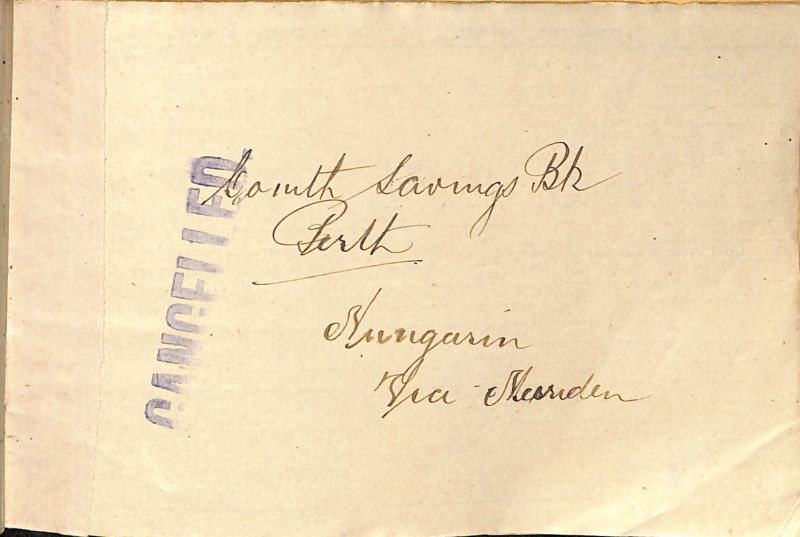 CANCELLED
Comth Savings Bk
Perth
Nungarin
Via Merriden